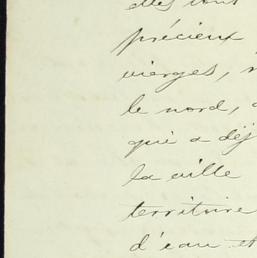 elles sont
précieux
vierges,
le nord,
qui a déj
la ville
territoire
d'eau et